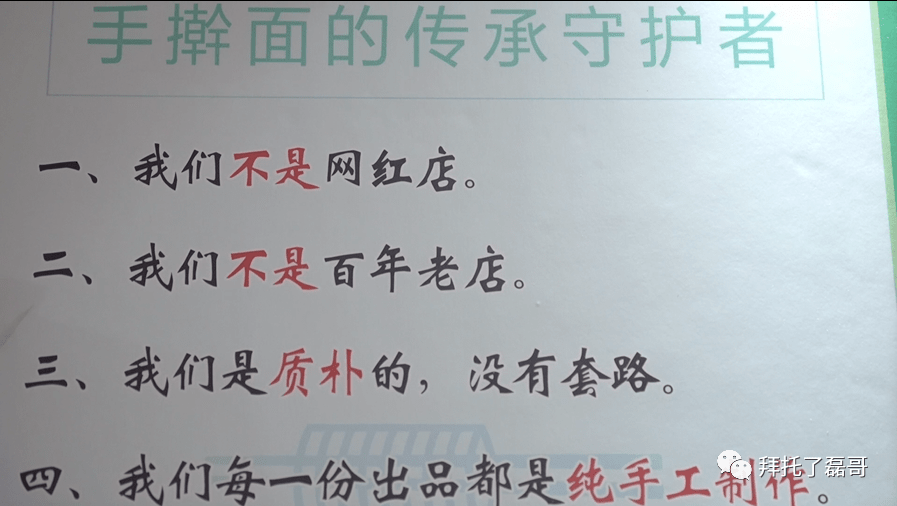 手擀面的传承守护者
一、我们不是网红店。
二、我们不是百年老店。
三、我们是质朴的，没有套路。
四、我们每一份出品都是纯手工制作。
拜托了磊哥